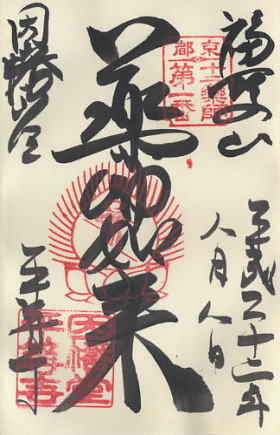 福聚山
平成二十二年
八月八日
京都
十二薬師
第一番
薬師如来
因幡堂
平等寺
因幡堂
平等寺